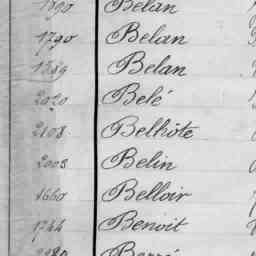 1890 Belan
1790 Belan
1889 Belan
2020 Belé
2108 Belhôte
2003 Belin
1660 Belloir
1744 Benoit